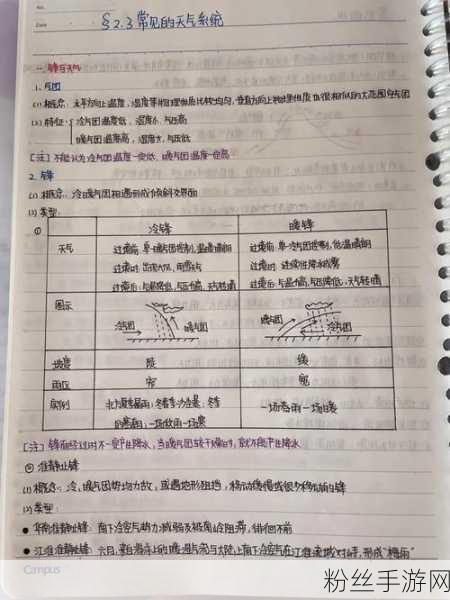 No.
Date
§2.3 常见的天气系统
一、锋与天气
1、气团
(1) 概念：水平方向上温度、湿度等物理性质比较均匀，垂直方向上物理性质也很相似的大范围空气团
(2) 特征： 冷气团温度低，湿度小，气压高
暖气团温度高，湿度大，气压低
[注] 不能认为冷气团温度一定低，暖气团温度一定高
2、锋
(1) 概念：冷暖气团相遇形成倾斜交界面
(2) 类型：
① 冷锋 暖锋
天气 过境前：单一暖气团控制，温暖晴朗 过境前：单一冷气团控制，低温晴朗
过境时：出现大风，雨雪天气 过境时：连续性降水或雾
过境后：气温降低，气压升高，天气转晴 过境后：气温升高，气压降低，天气转晴
图示 冷气团 暖气团 暖气团 冷气团
速度 快 慢
雨区 窄 宽
实例 北方夏季暴雨；冬春季沙尘暴；冬季 一场春雨一场暖
的寒潮；一场秋雨一场寒
[注] 锋面经过时不一定产生降水，当暖气团较干燥时，就不能产生降水
② 准静止锋
(1) 概念：冷，暖气团势均力敌，或遇地形阻挡，移动缓慢或很少移动的锋
(2) 类型：
● 华南准静止锋：南下冷空气势力减弱及被南岭阻滞，徘徊不前
● 江淮准静止锋：六月，来自海洋上的暖湿气流与大陆上南下冷空气在江淮流域对峙，形成“梅雨”
Campus
粉丝手游网